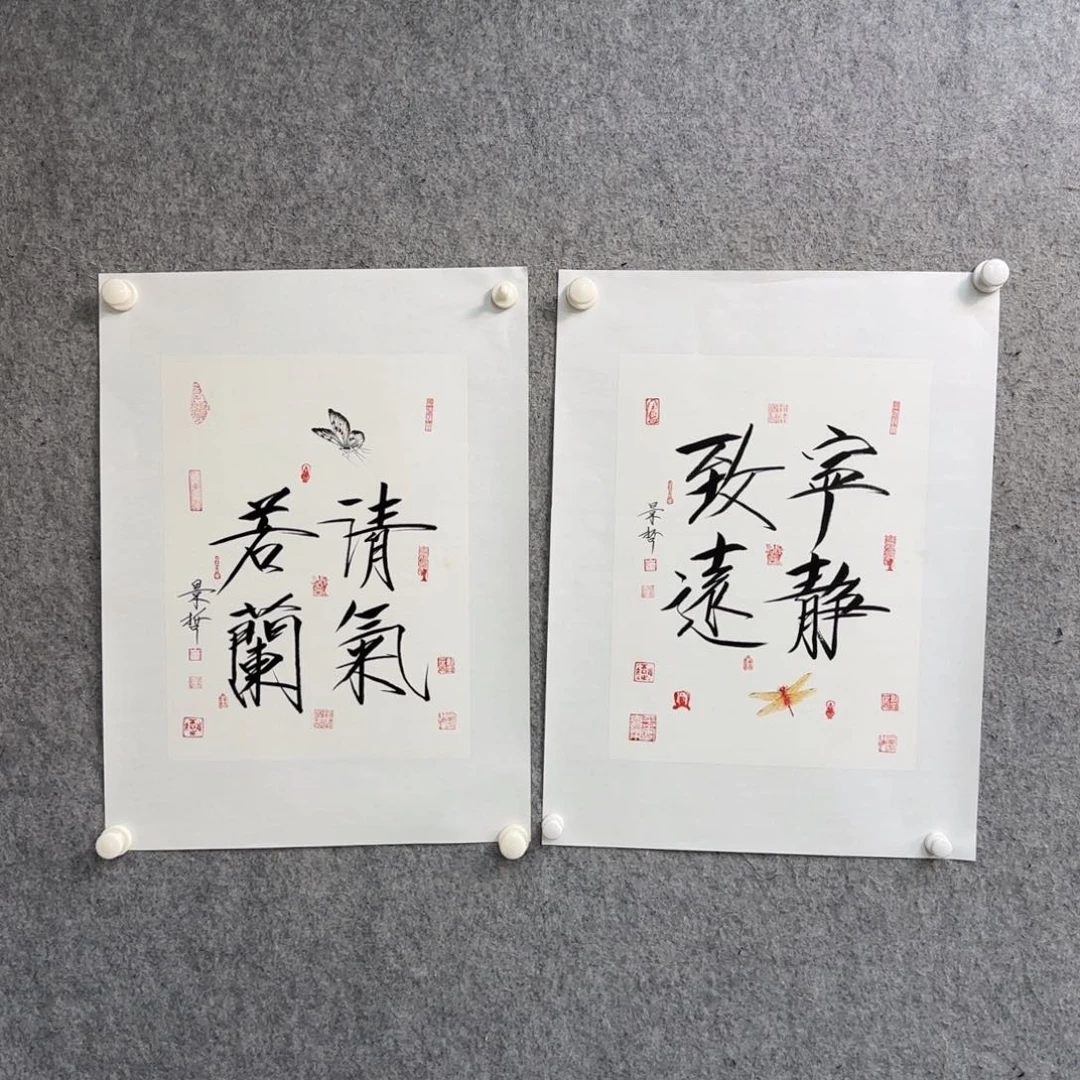 请氣
若蘭
景哲
寧静
致遠
景哲